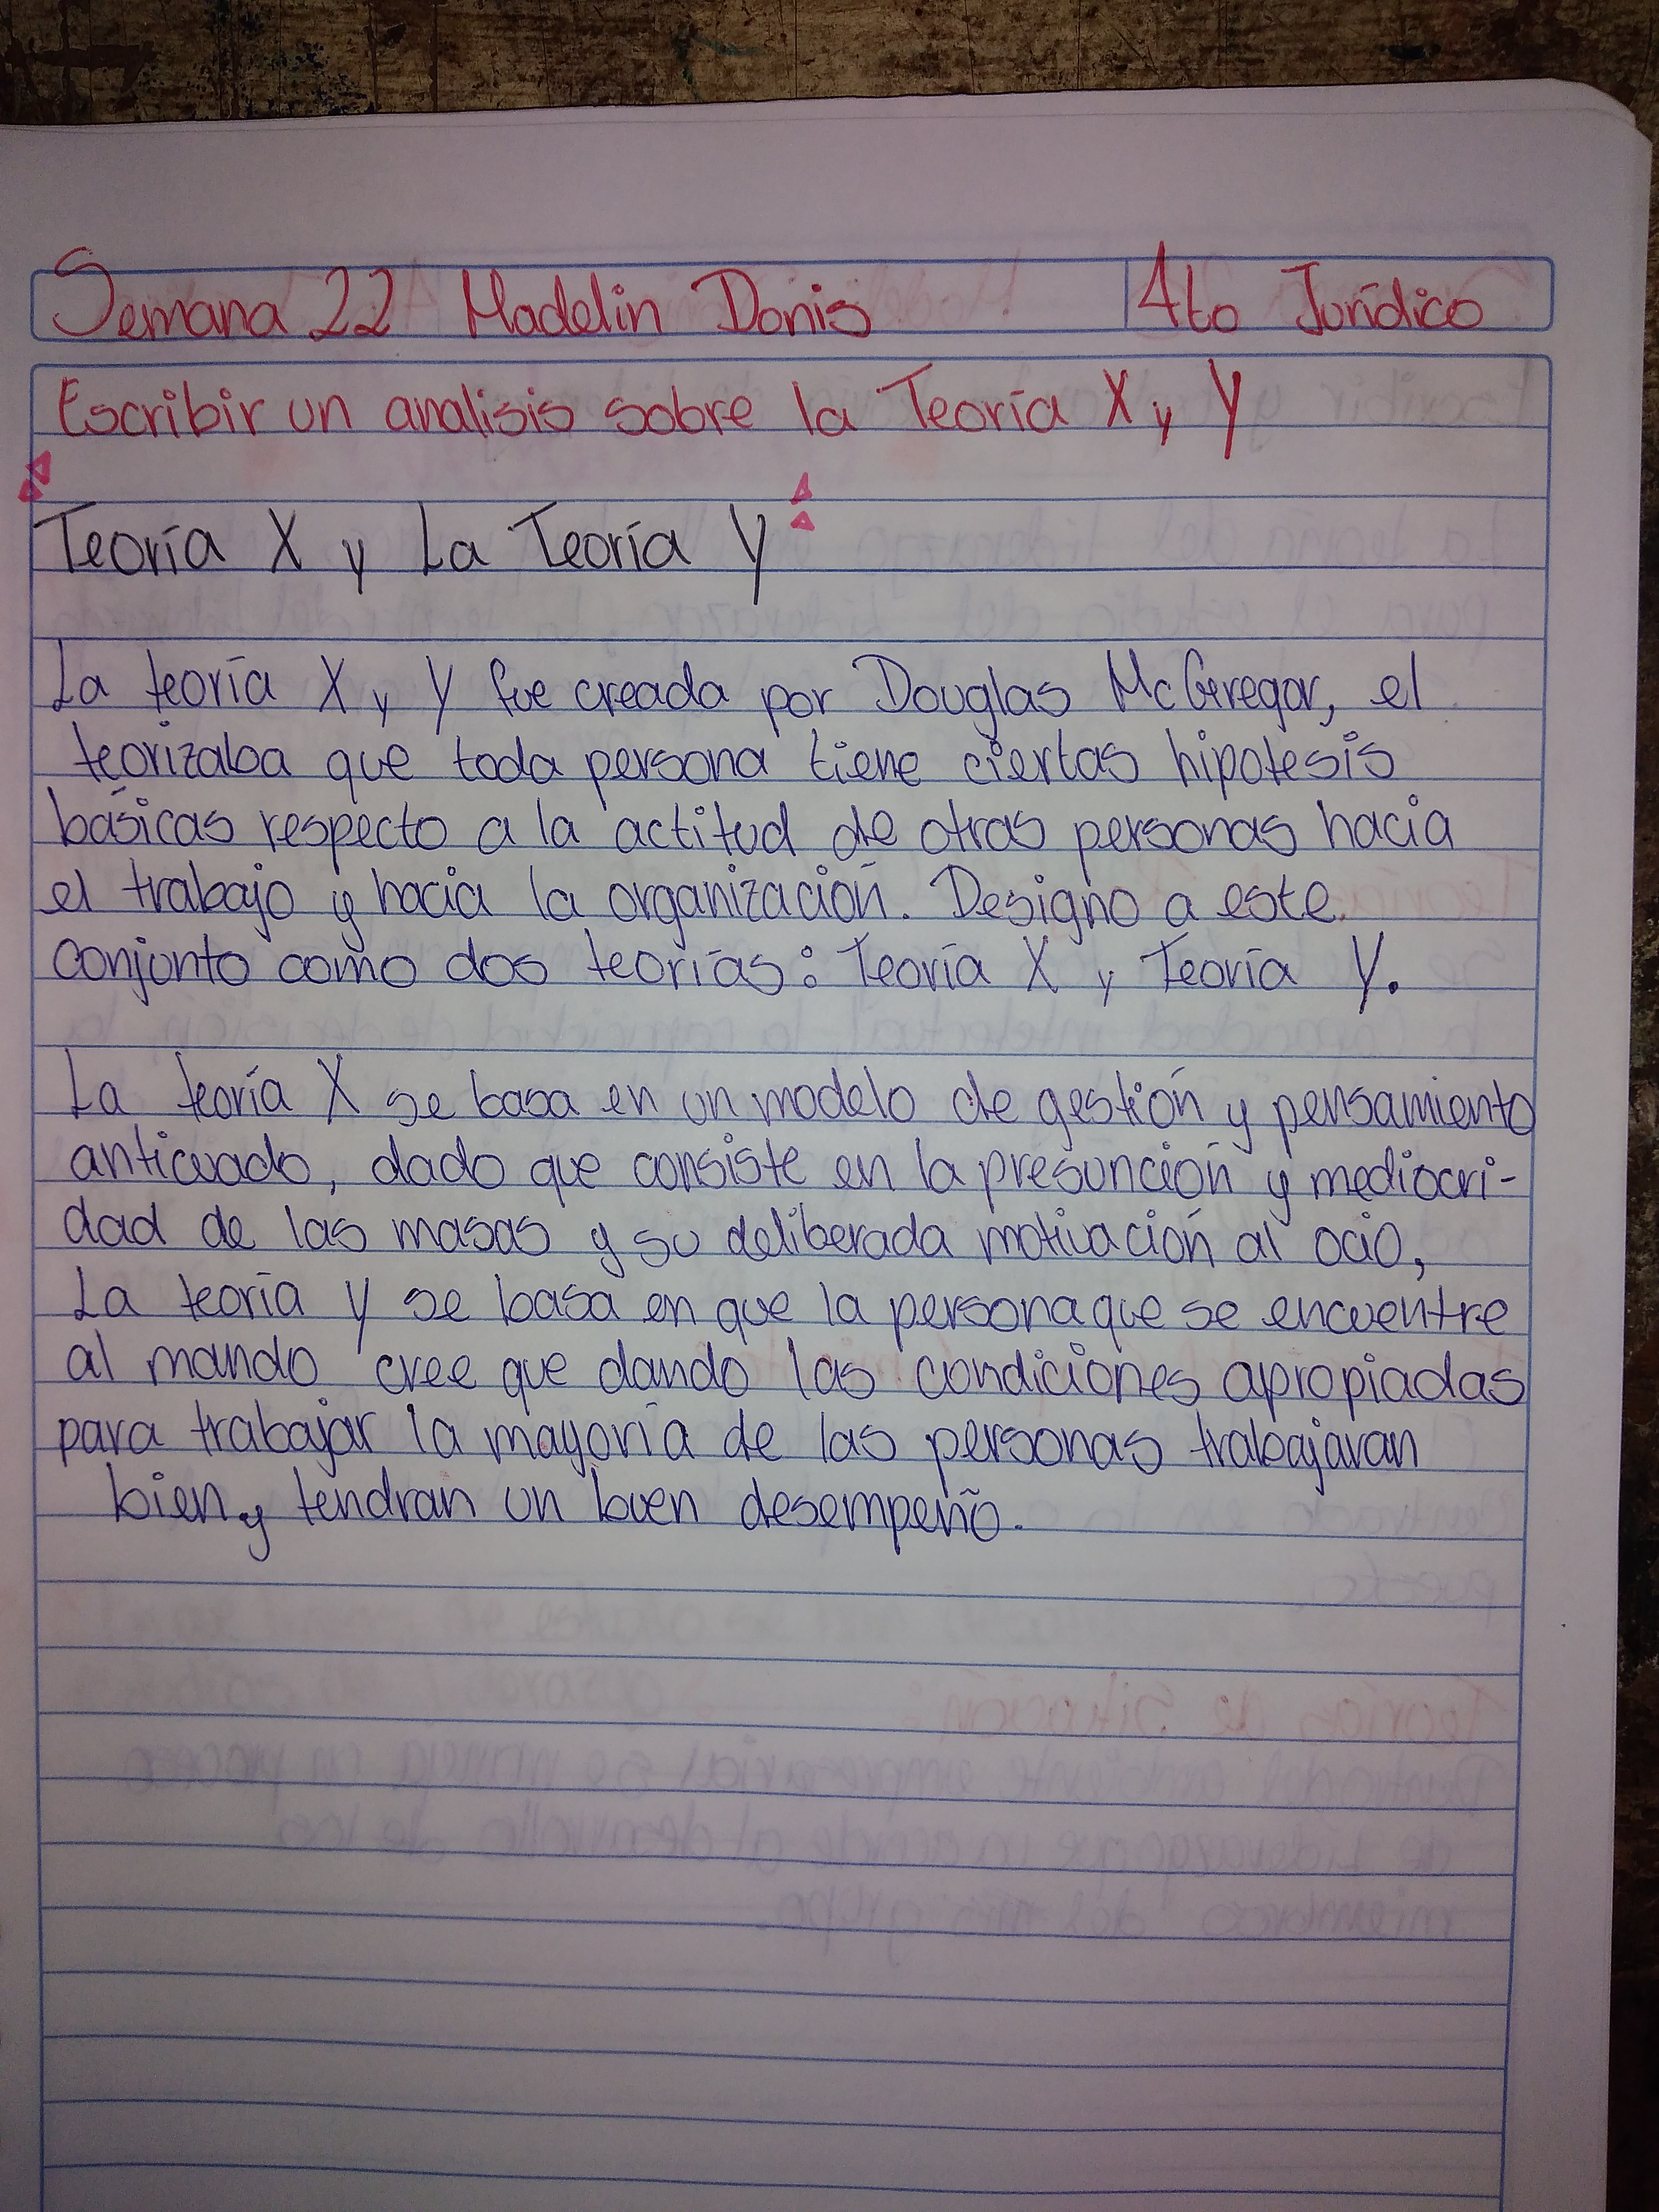 Semana 22 Madelin Donis 4to Jurídico
Escribir un analisis sobre la Teoría X y Y
Teoría X y La Teoría Y
La teoría X y Y fue creada por Douglas McGregor, el
teorizaba que toda persona tiene ciertas hipotesis
básicas respecto a la actitud de otras personas hacia
el trabajo y hacia la organización. Designo a este
conjunto como dos teorías: Teoría X y Teoría Y.
La teoría X se basa en un modelo de gestión y pensamiento
anticuado, dado que consiste en la presunción y mediocri-
dad de las masas y su deliberada motivación al ocio,
La teoría Y se basa en que la persona que se encuentre
al mando cree que dando las condiciones apropiadas
para trabajar la mayoría de las personas trabajaran
bien y tendran un buen desempeño.